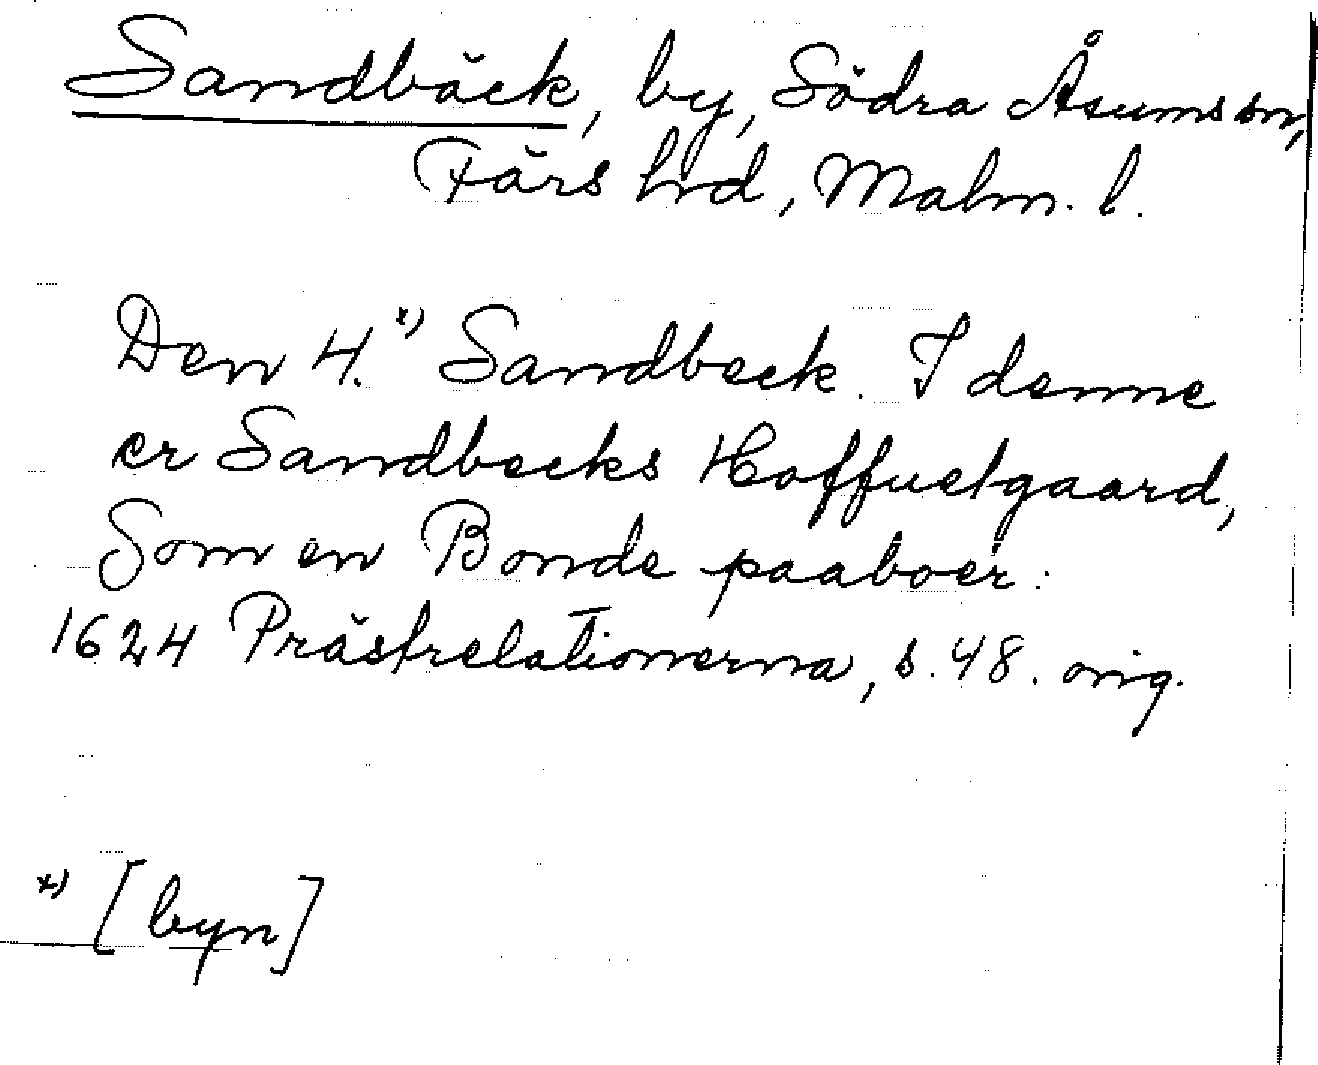 Sandbäck, by, Södra Åsums sn,
Färs hrd, Malm. l.
Den 4.*) Sandbeck. I denne
er Sandbecks Hoffuetgaard,
Som en Bonde paaboer:
1624 Prästrelationerna, s. 48. orig.
*) [byn]